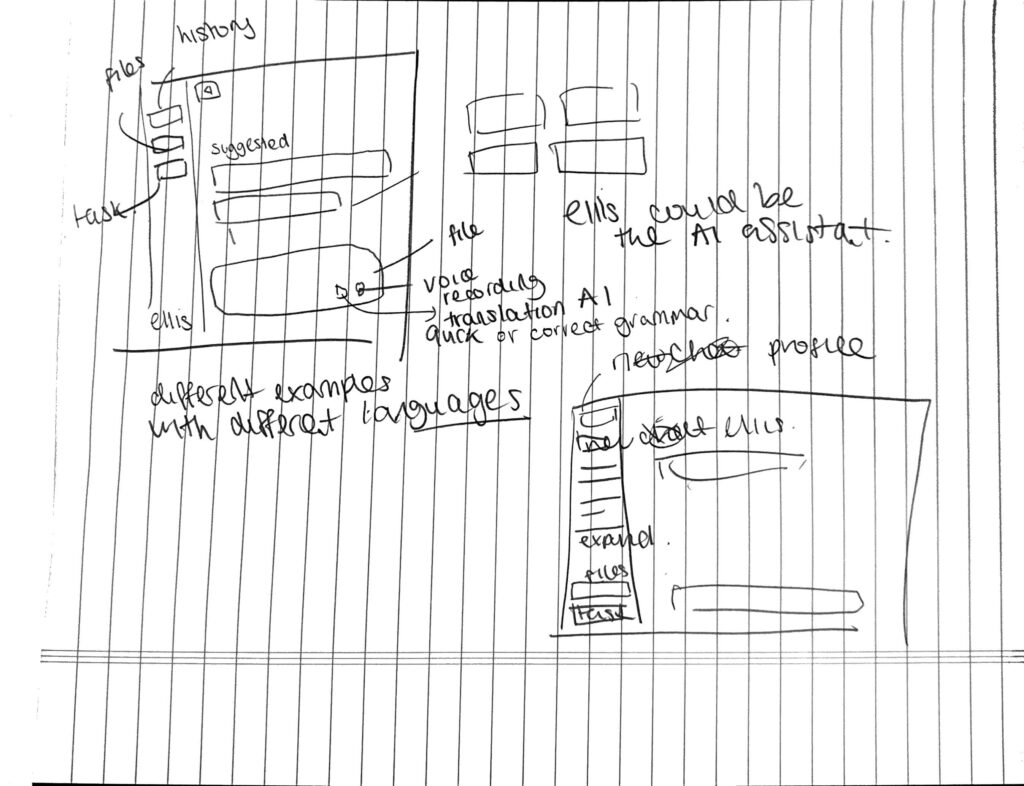 history
files
suggested
task
file
voice
recording
translation AI
quick or correct grammar.
ellis
ellis could be
the AI assistant.
different examples
with different languages
profile
ellis.
expand.
files
task